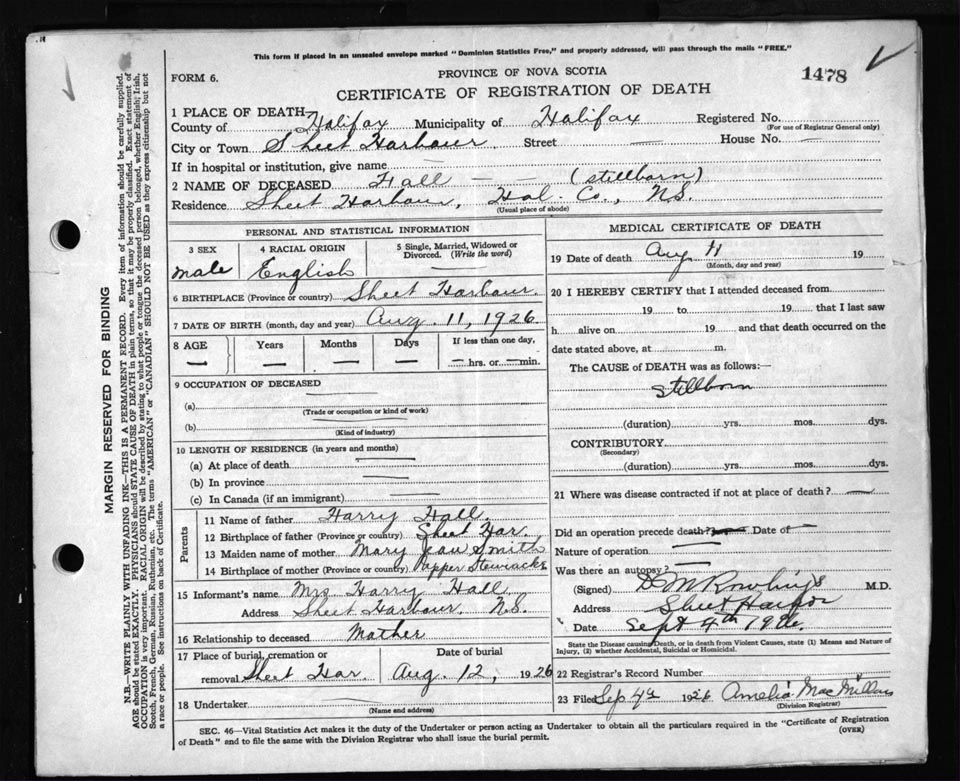 This form if placed in an unsealed envelope marked "Dominion Statistics Free," and properly addressed, will pass through the mails "FREE."
FORM 6.
PROVINCE OF NOVA SCOTIA
1478
CERTIFICATE OF REGISTRATION OF DEATH
1 PLACE OF DEATH
County of Halifax Municipality of Halifax Registered No.
(For use of Registrar General only)
City or Town Sheet Harbour Street — House No. —
If in hospital or institution, give name —
2 NAME OF DECEASED Hall — — (stillborn)
Residence Sheet Harbour, Hal. Co., N.S.
(Usual place of abode)
PERSONAL AND STATISTICAL INFORMATION
3 SEX 4 RACIAL ORIGIN 5 Single, Married, Widowed or Divorced. (Write the word)
male English —
6 BIRTHPLACE (Province or country) Sheet Harbour.
7 DATE OF BIRTH (month, day and year) Aug. 11, 1926
8 AGE Years Months Days If less than one day,
— — — — — hrs. or — min.
9 OCCUPATION OF DECEASED
(a) —
(Trade or occupation or kind of work)
(b)
(Kind of industry)
10 LENGTH OF RESIDENCE (in years and months)
(a) At place of death —
(b) In province —
(c) In Canada (if an immigrant) —
Parents
11 Name of father Harry Hall
12 Birthplace of father (Province or country) Sheet Har.
13 Maiden name of mother Mary Jean Smith
14 Birthplace of mother (Province or country) Upper Stewiacke
15 Informant's name Mrs Harry Hall
Address Sheet Harbour. N.S.
16 Relationship to deceased Mother
17 Place of burial, cremation or removal Sheet Har. Date of burial Aug. 12, 1926
18 Undertaker
(Name and address)
MEDICAL CERTIFICATE OF DEATH
19 Date of death Aug 11 19
(Month, day and year)
20 I HEREBY CERTIFY that I attended deceased from
19 to 19 that I last saw
h alive on 19 and that death occurred on the
date stated above, at m.
The CAUSE of DEATH was as follows:—
Stillborn
(duration) yrs. mos. dys.
CONTRIBUTORY
(Secondary)
(duration) yrs. mos. dys.
21 Where was disease contracted if not at place of death? —
Did an operation precede death? — Date of —
Nature of operation —
Was there an autopsy? —
(Signed) D M Rowlings M.D.
Address Sheet Harbor
Date Sept 4th 1926
State the Disease causing Death, or in death from Violent Causes, state (1) Means and Nature of
Injury, (2) whether Accidental, Suicidal or Homicidal.
22 Registrar's Record Number
23 Filed Sep 4th 1926 Amelia MacMillan
(Division Registrar)
SEC. 46—Vital Statistics Act makes it the duty of the Undertaker or person acting as Undertaker to obtain all the particulars required in the "Certificate of Registration
of Death" and to file the same with the Division Registrar who shall issue the burial permit.
(OVER)
MARGIN RESERVED FOR BINDING
N.B.—WRITE PLAINLY WITH UNFADING INK—THIS IS A PERMANENT RECORD. Every item of information should be carefully supplied.
AGE should be stated EXACTLY. PHYSICIANS should STATE CAUSE OF DEATH in plain terms, so that it may be properly classified. Exact statement of
OCCUPATION is very important. RACIAL ORIGIN will be described by stating to what people or tongue the deceased person belonged, whether English, Irish,
Scotch, French, German, Russian, Ruthenian, etc. The terms "AMERICAN" or "CANADIAN" SHOULD NOT BE USED as they express citizenship but not
a race or people. See instructions on back of Certificate.